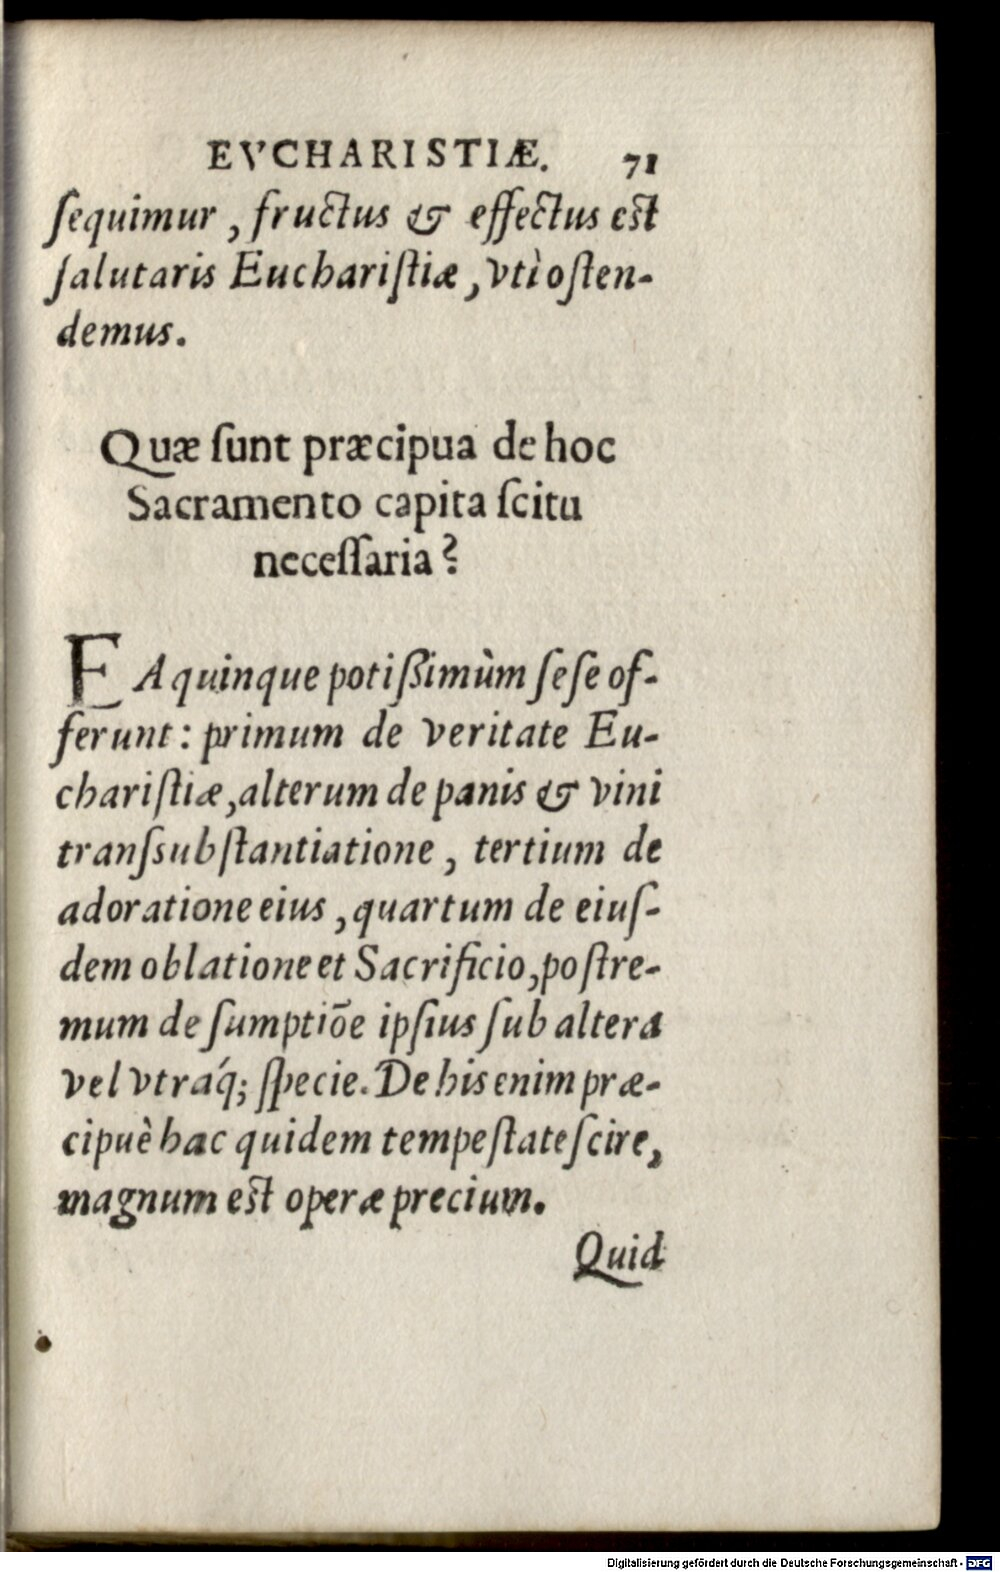 EVCHARISTIÆ. 71
ſequimur, fructus & effectus est
ſalutaris Euchariſtiæ, vtì oſten-
demus.
Quæ ſunt præcipua de hoc
Sacramento capita ſcitu
neceſſaria?
EA quinque potiſſimùm ſeſe of-
ferunt: primum de veritate Eu-
chariſtiæ, alterum de panis & vini
tranſsubſtantiatione, tertium de
adoratione eius, quartum de eiuſ-
dem oblatione et Sacrificio, poſtre-
mum de ſumptiōe ipſius ſub altera
vel vtráq; ſpecie. De his enim præ-
cipuè hac quidem tempeſtate ſcire,
magnum est operæ precium.
Quid
Digitalisierung gefördert durch die Deutsche Forschungsgemeinschaft - DFG